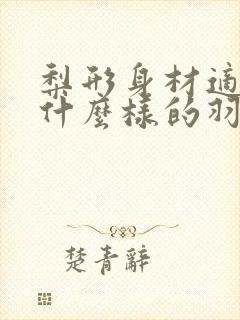 梨形身材適
什麼樣的羽
楚青辭